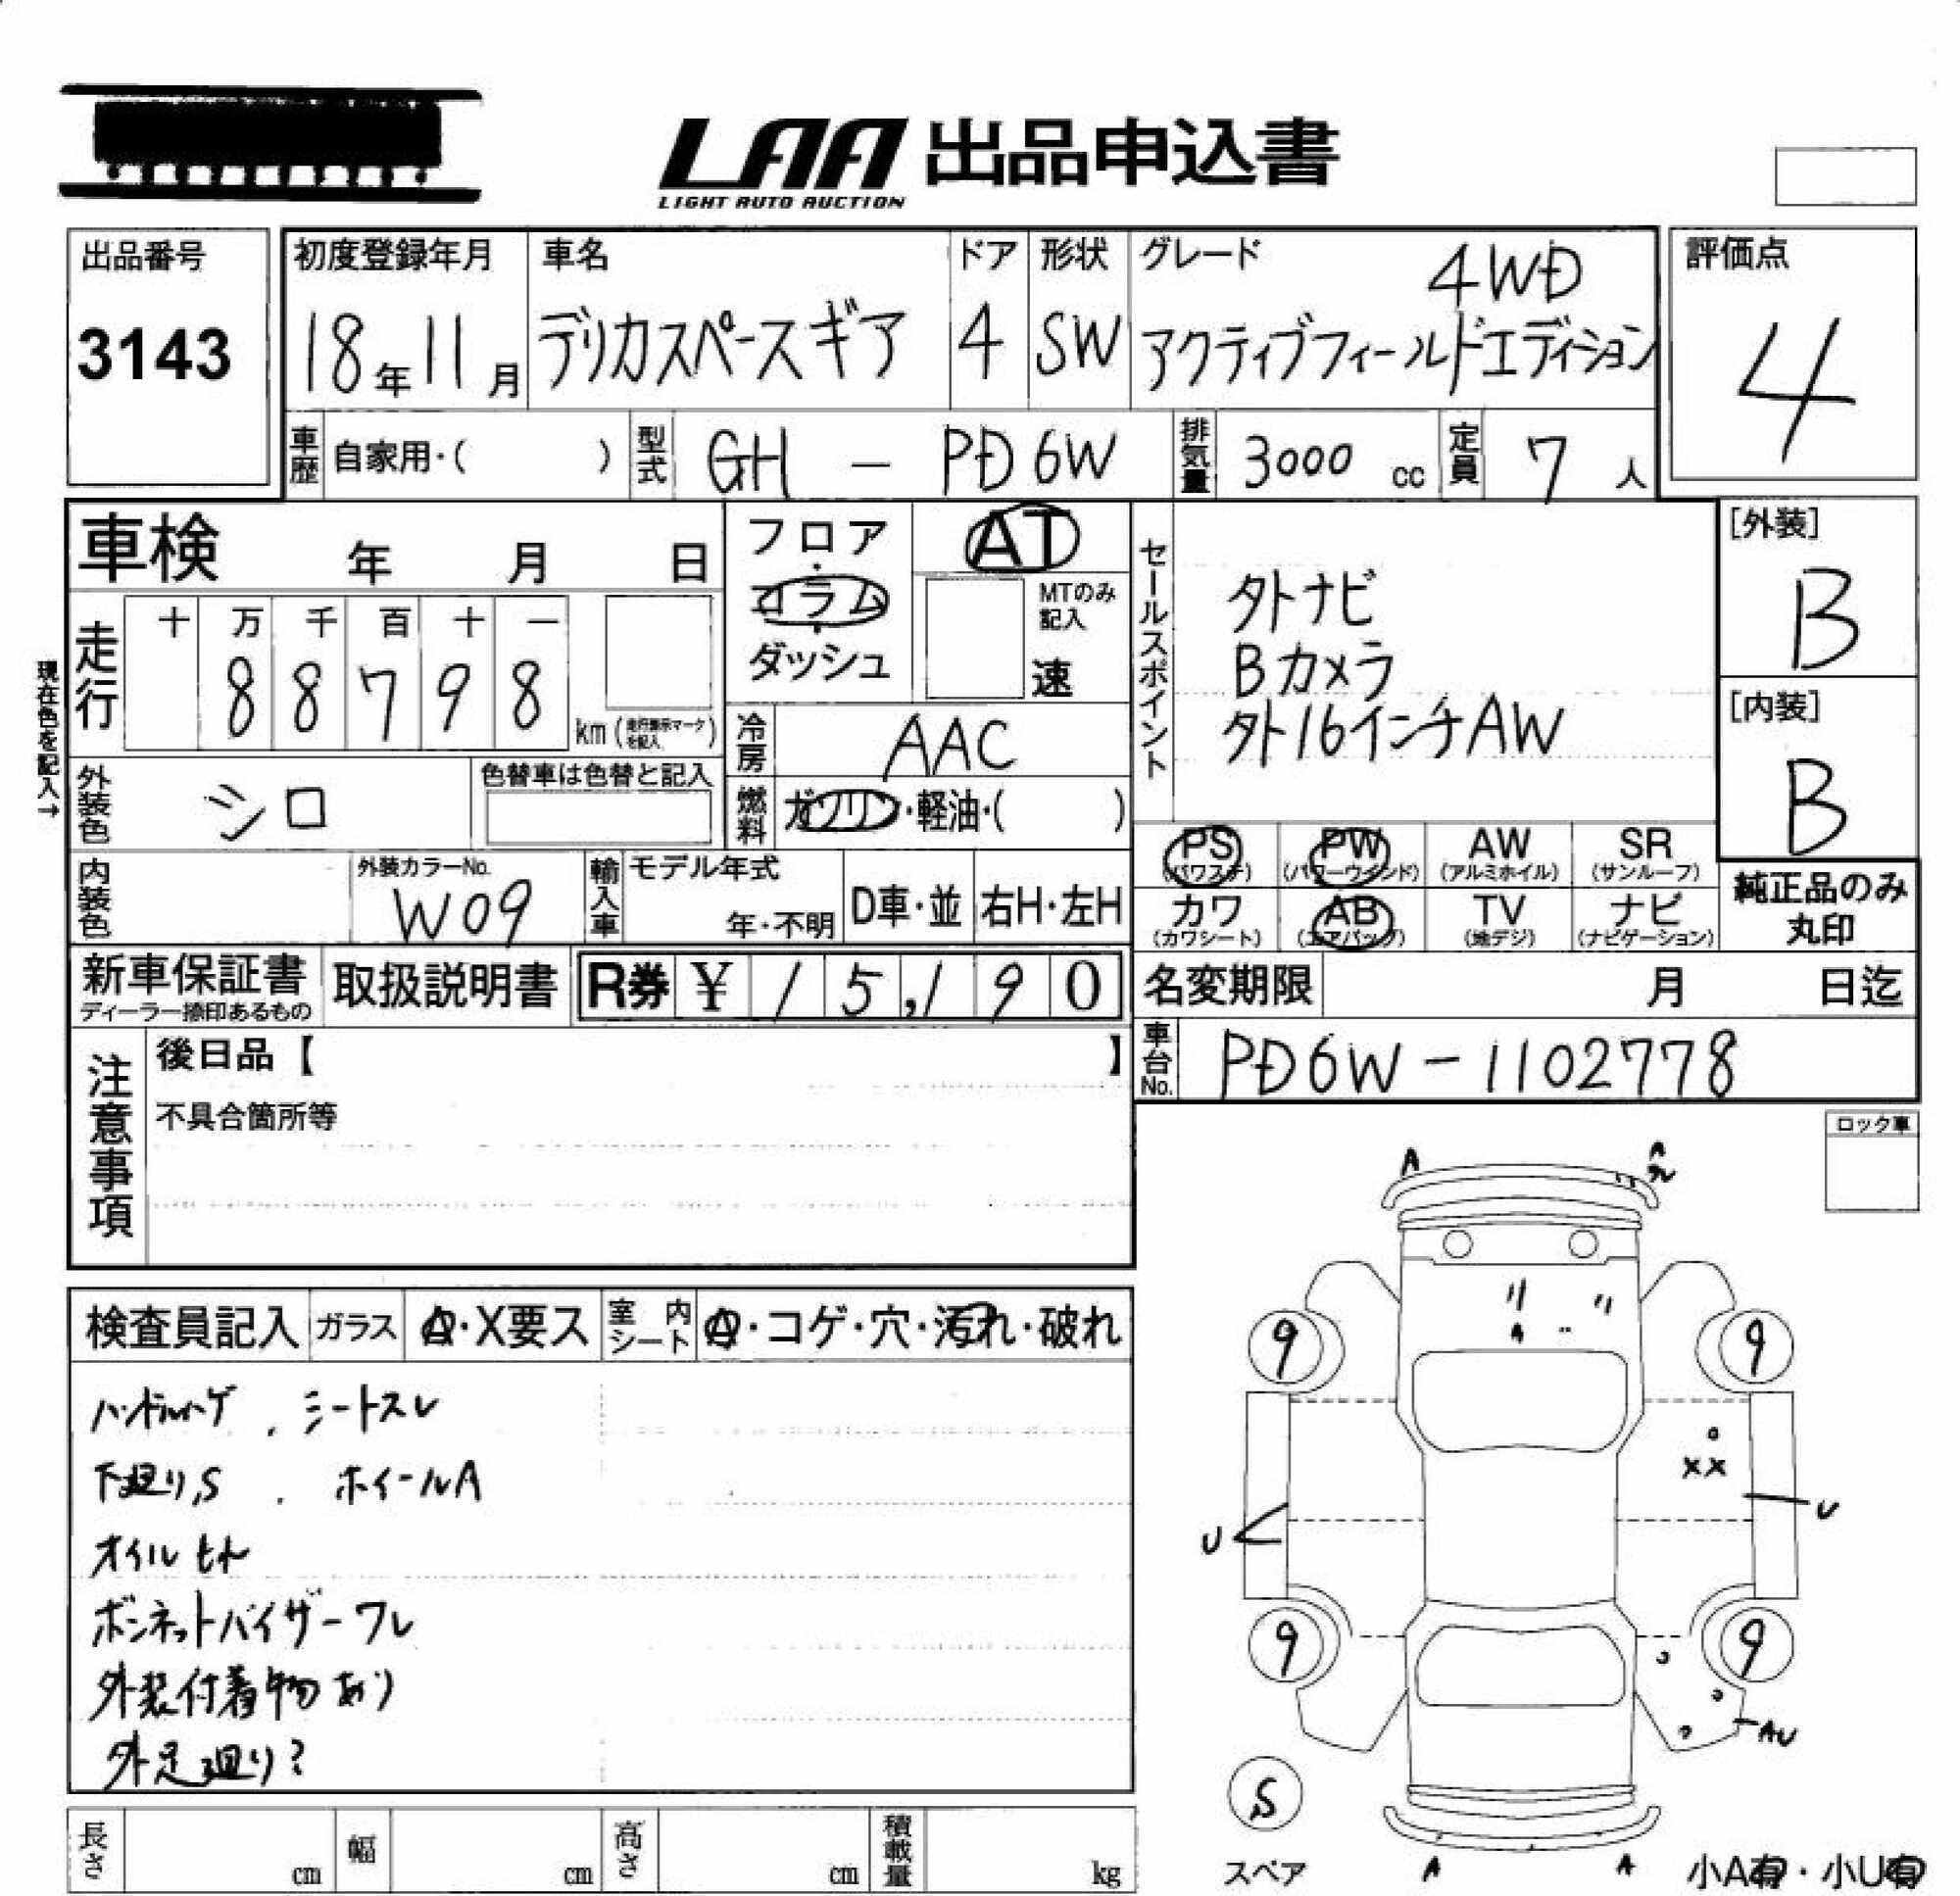 LAA 出品申込書
LIGHT AUTO AUCTION
出品番号
3143
初度登録年月
18年11月
車名
デリカスペースギア
ドア
4
形状
SW
グレード
4WD
アクティブフィールドエディション
評価点
4
車歴 自家用・( )
型式 GH - PD6W
排気量 3000 cc
定員 7 人
車検 年 月 日
フロア・コラム・ダッシュ
AT
MTのみ記入
速
セールスポイント
外ナビ
Bカメラ
外16インチAW
[外装]
B
[内装]
B
現在色を記入→
走行
十 万 千 百 十 一
8 8 7 9 8
km(走行表示マークを記入)
冷房 AAC
燃料 ガソリン・軽油・( )
外装色 シロ
色替車は色替と記入
内装色
外装カラーNo.
W09
輸入車
モデル年式
年・不明
D車・並
右H・左H
PS (パワステ)
PW (パワーウインド)
AW (アルミホイル)
SR (サンルーフ)
カワ (カワシート)
AB (エアバック)
TV (地デジ)
ナビ (ナビゲーション)
純正品のみ
丸印
新車保証書
ディーラー捺印あるもの
取扱説明書
R券 ¥ 15,190
名変期限 月 日迄
車台No. PD6W-1102778
注意事項
後日品【 】
不具合箇所等
ロック車
検査員記入
ガラス
A・X要ス
室内シート
A・コゲ・穴・汚れ・破れ
ハンドルハゲ . シートスレ
下廻りS . ホイールA
オイルモレ
ボンネットバイザーワレ
外装付着物あり
外足廻り?
A
A
A
9
9
XX
U
U
9
9
AU
S
スペア
A
A
小A有・小U有
長さ cm
幅 cm
高さ cm
積載量 kg